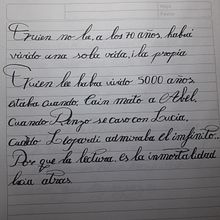 Quien no lee, a los 70 años, habrá
vivido una sola vida, ¡la propia
Quien lee habrá vivido 5000 años
estaba cuando, Caín mató a Abel,
Cuando Renzo se casó con Lucía,
Cuando Leopardi admiraba el infinito...
Por que la lectura, es la inmortalidad
hacia atrás.